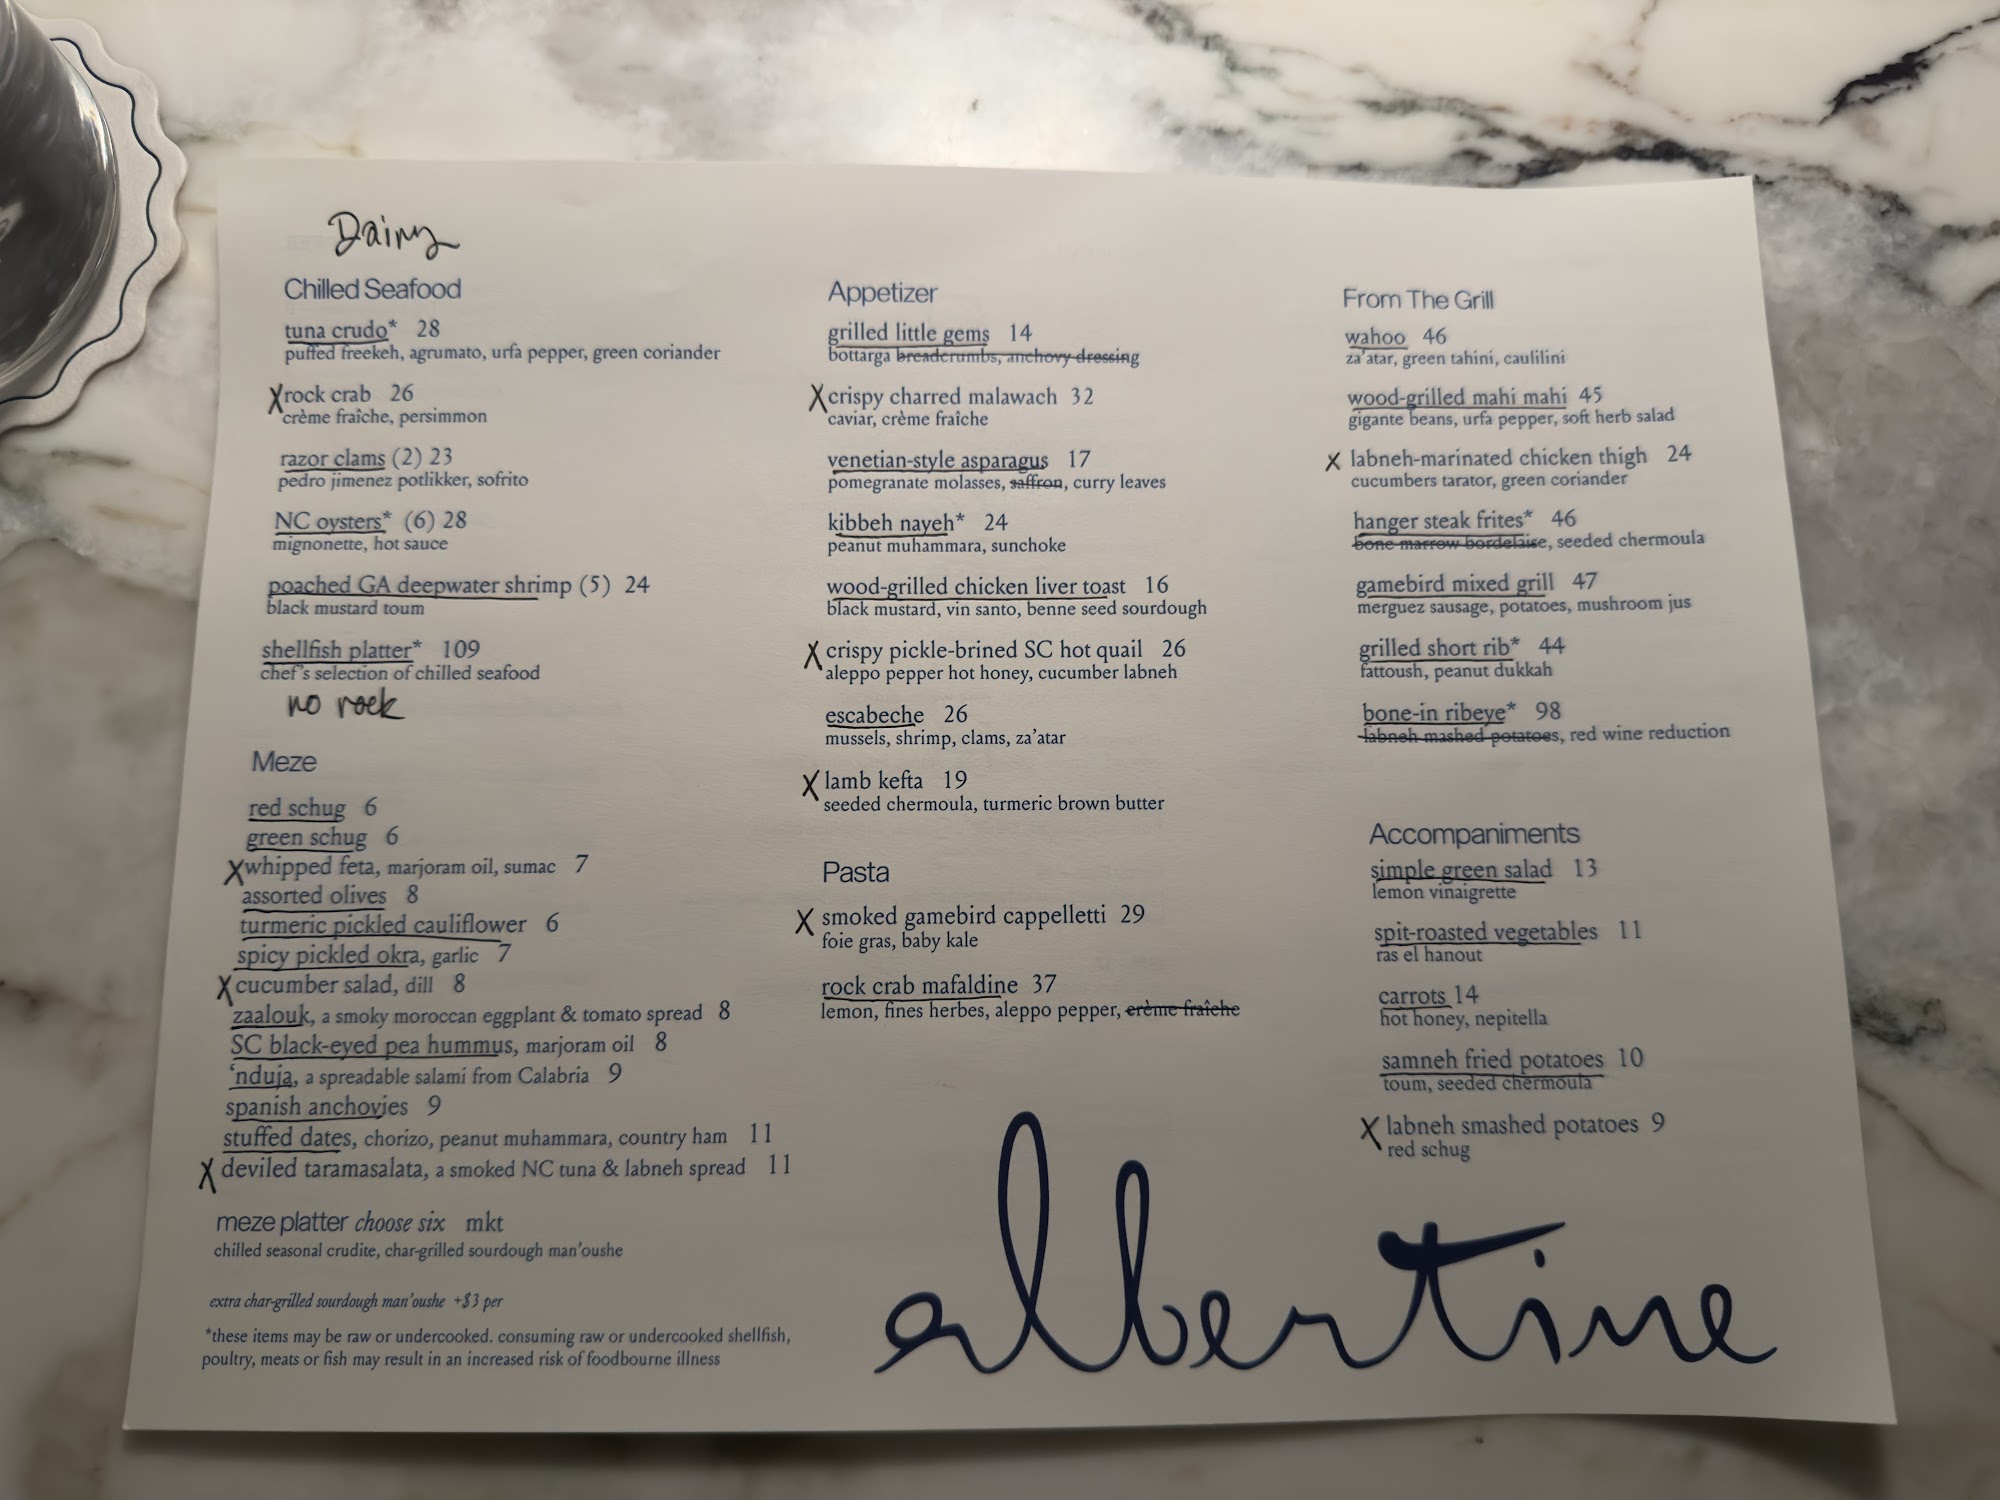 Dairy
Chilled Seafood
tuna crudo* 28
puffed freekeh, agrumato, urfa pepper, green coriander
X rock crab 26
crème fraîche, persimmon
razor clams (2) 23
pedro jimenez potlikker, sofrito
NC oysters* (6) 28
mignonette, hot sauce
poached GA deepwater shrimp (5) 24
black mustard toum
shellfish platter* 109
chef's selection of chilled seafood
no rock
Meze
red schug 6
green schug 6
X whipped feta, marjoram oil, sumac 7
assorted olives 8
turmeric pickled cauliflower 6
spicy pickled okra, garlic 7
X cucumber salad, dill 8
zaalouk, a smoky moroccan eggplant & tomato spread 8
SC black-eyed pea hummus, marjoram oil 8
'nduja, a spreadable salami from Calabria 9
spanish anchovies 9
stuffed dates, chorizo, peanut muhammara, country ham 11
X deviled taramasalata, a smoked NC tuna & labneh spread 11
meze platter choose six mkt
chilled seasonal crudite, char-grilled sourdough man'oushe
extra char-grilled sourdough man'oushe +$3 per
*these items may be raw or undercooked. consuming raw or undercooked shellfish,
poultry, meats or fish may result in an increased risk of foodbourne illness
Appetizer
grilled little gems 14
bottarga breadcrumbs, anchovy dressing
X crispy charred malawach 32
caviar, crème fraîche
venetian-style asparagus 17
pomegranate molasses, saffron, curry leaves
kibbeh nayeh* 24
peanut muhammara, sunchoke
wood-grilled chicken liver toast 16
black mustard, vin santo, benne seed sourdough
X crispy pickle-brined SC hot quail 26
aleppo pepper hot honey, cucumber labneh
escabeche 26
mussels, shrimp, clams, za'atar
X lamb kefta 19
seeded chermoula, turmeric brown butter
Pasta
X smoked gamebird cappelletti 29
foie gras, baby kale
rock crab mafaldine 37
lemon, fines herbes, aleppo pepper, crème fraîche
From The Grill
wahoo 46
za'atar, green tahini, caulilini
wood-grilled mahi mahi 45
gigante beans, urfa pepper, soft herb salad
X labneh-marinated chicken thigh 24
cucumbers tarator, green coriander
hanger steak frites* 46
bone marrow bordelaise, seeded chermoula
gamebird mixed grill 47
merguez sausage, potatoes, mushroom jus
grilled short rib* 44
fattoush, peanut dukkah
bone-in ribeye* 98
labneh mashed potatoes, red wine reduction
Accompaniments
simple green salad 13
lemon vinaigrette
spit-roasted vegetables 11
ras el hanout
carrots 14
hot honey, nepitella
samneh fried potatoes 10
toum, seeded chermoula
X labneh smashed potatoes 9
red schug
albertine